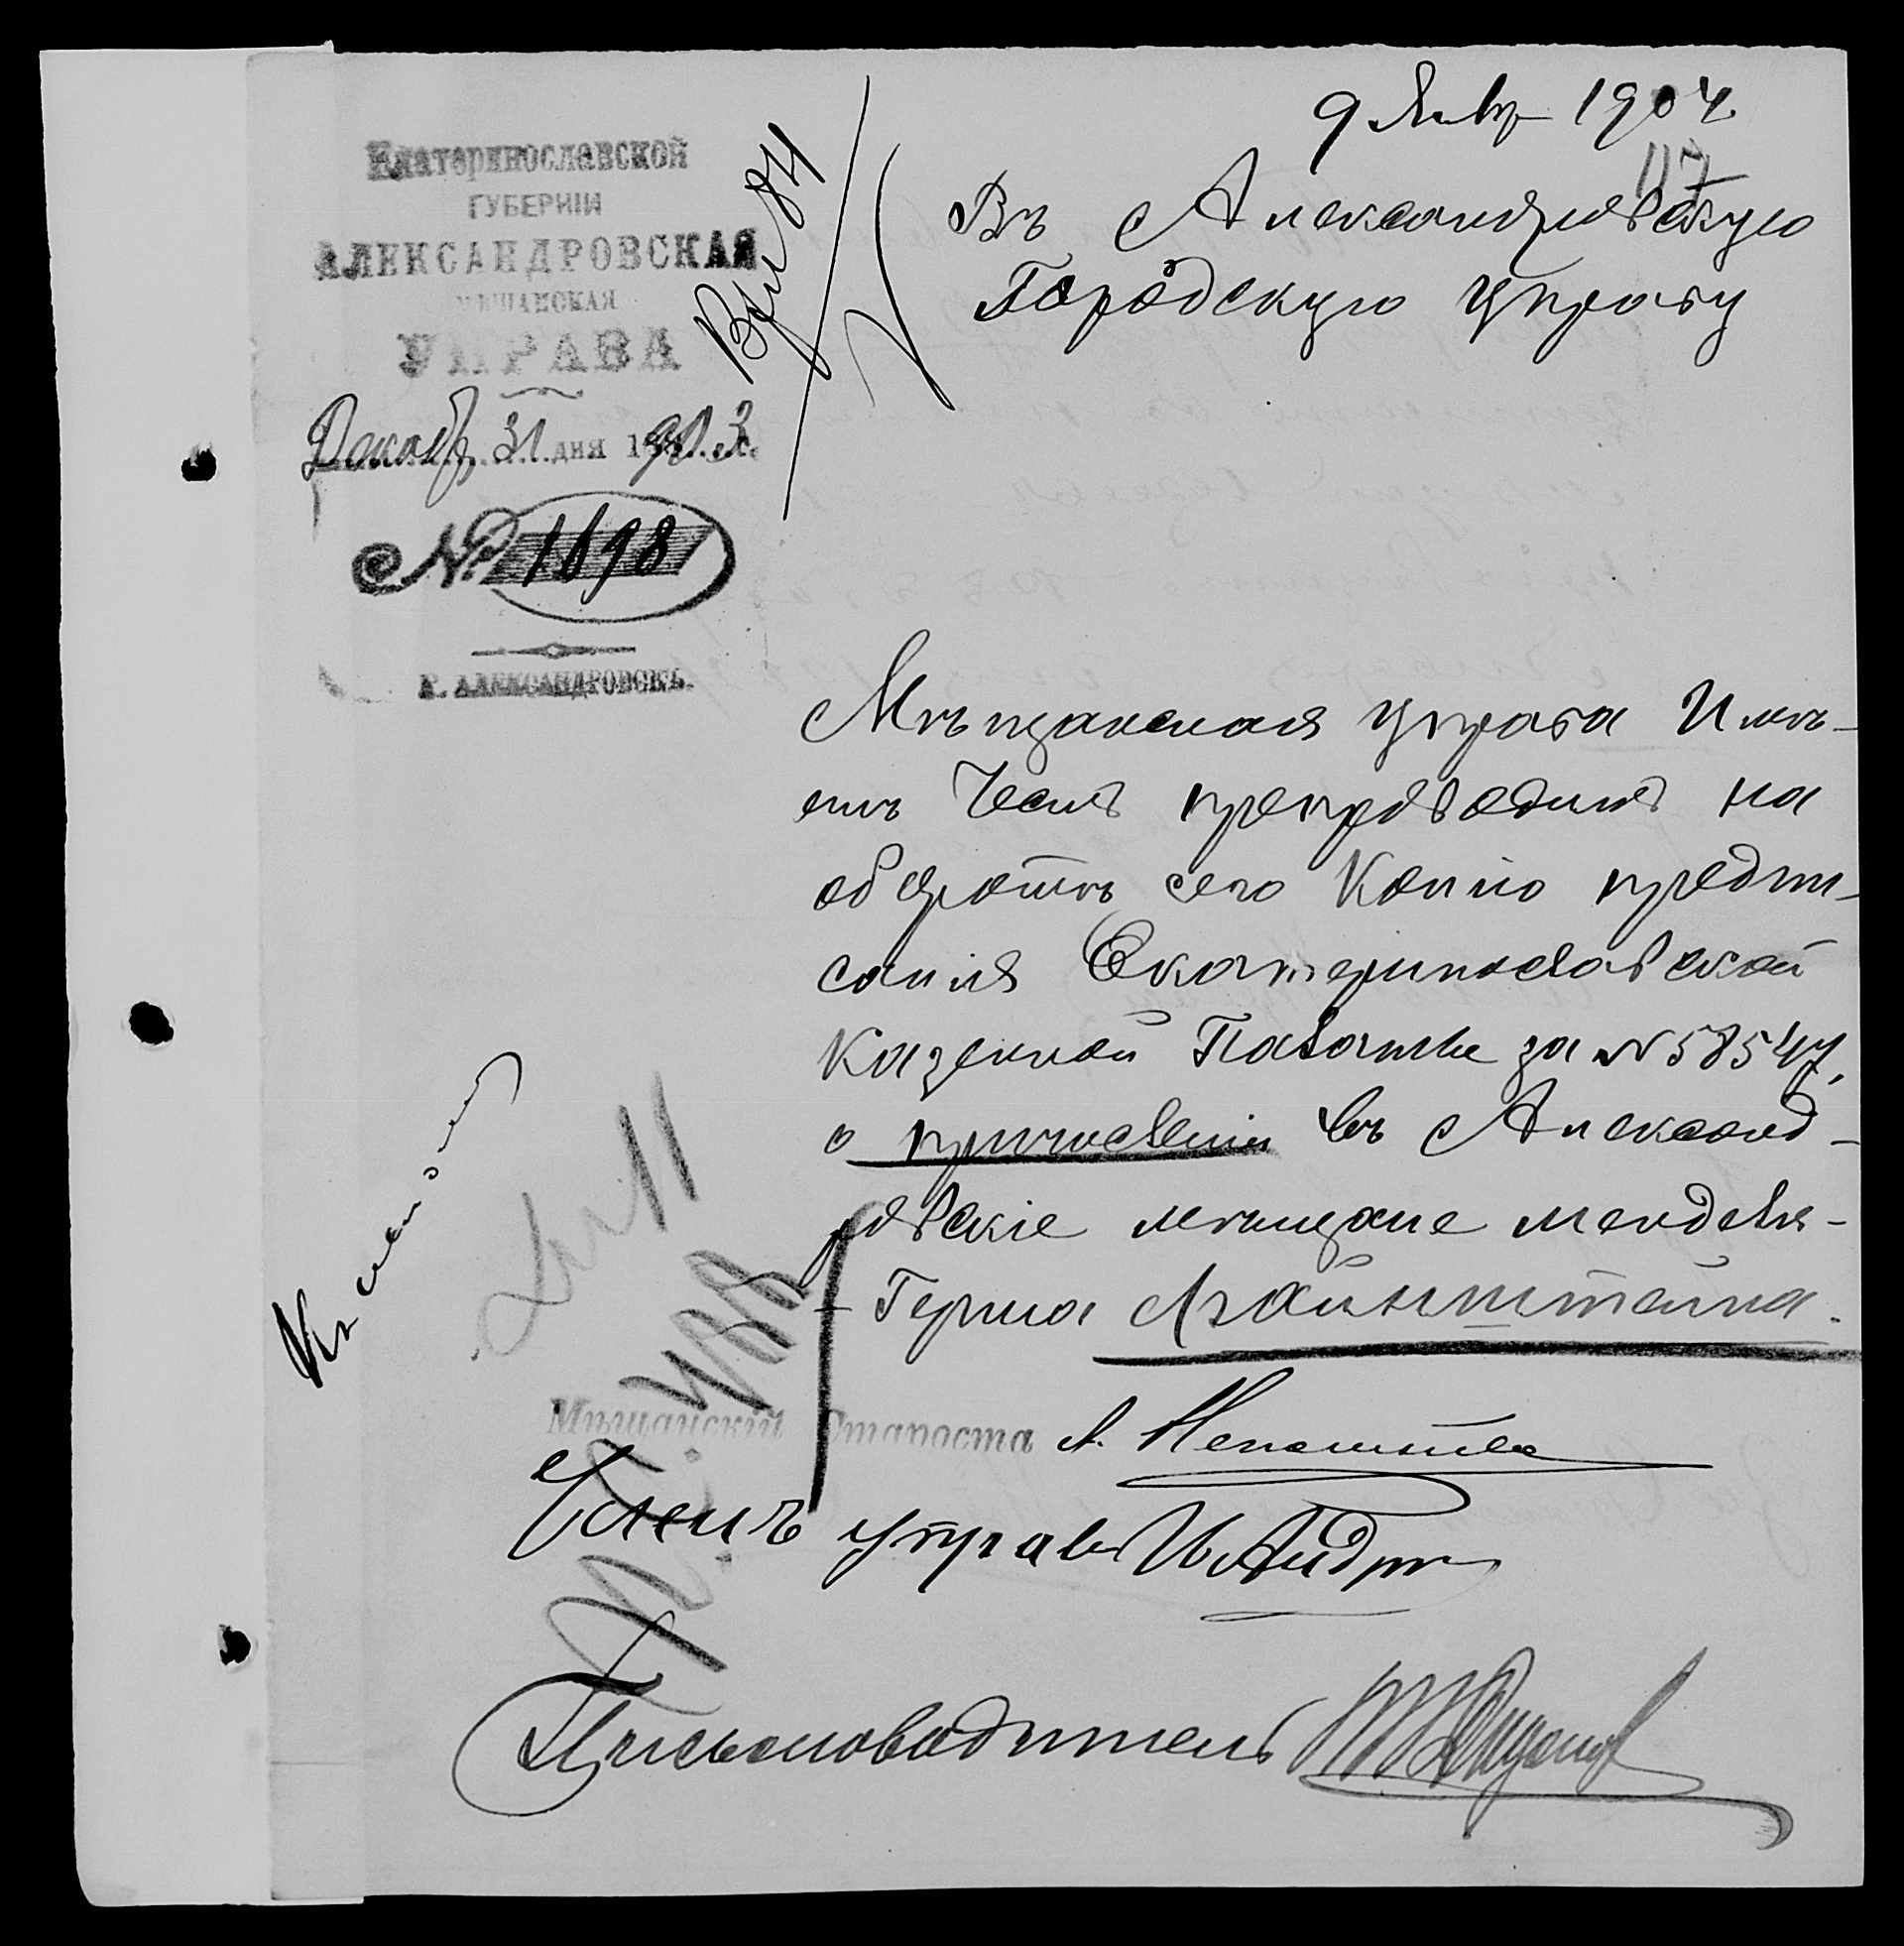 9 Янв 1904
117
Екатеринославской
ГУБЕРНІИ
АЛЕКСАНДРОВСКАЯ
МѢЩАНСКАЯ
УПРАВА
Декабр. 31 дня 1903.
№ 1698
Г. АЛЕКСАНДРОВСКЪ.
84
Въ Александровскую
Городскую управу
Мѣщанская управа Имѣ-
етъ Честь препроводить на
оборотѣ сего Копію предпи-
санія Екатеринославской
Казенной Палаты за № 58547,
о причисленіи въ Александ-
ровскіе мѣщане Менделя-
-Герша Лгайнштейна.
Мѣщанскій Староста
Членъ управы
Письмоводитель